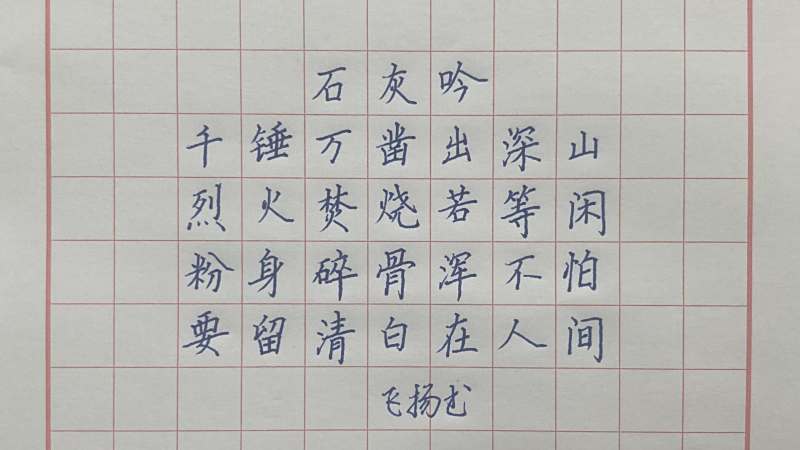 石灰吟
千锤万凿出深山
烈火焚烧若等闲
粉身碎骨浑不怕
要留清白在人间
飞扬书